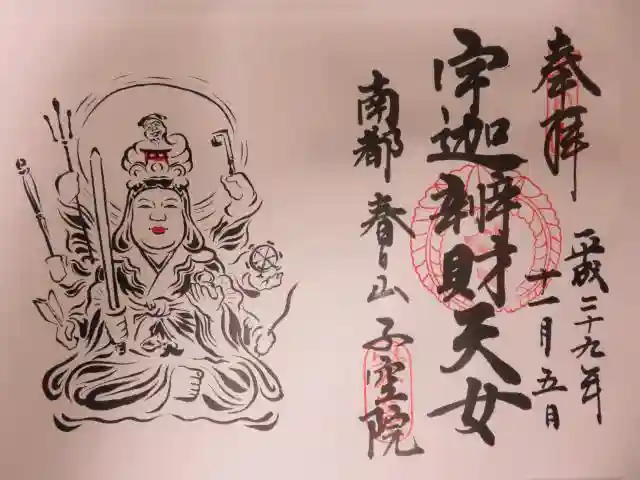 奉拝
平成二十九年
十一月五日
宇迦辨財天女
南都 春日山 不空院